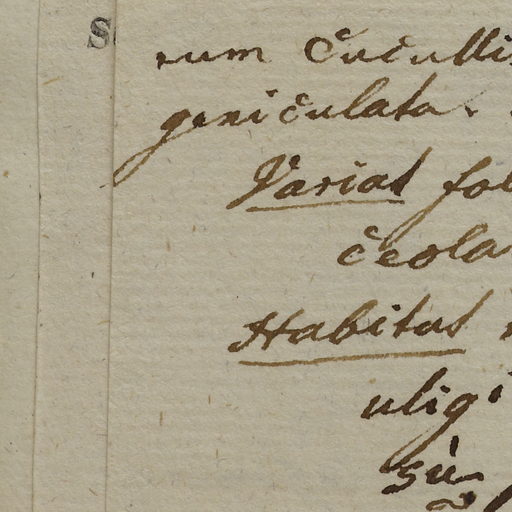 rum Cuculli
geniculata.
Variat fol
ceola
Habitat
uligi
su